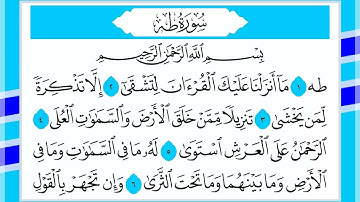 سُورَةُ طٰهٰ
بِسْمِ ٱللَّهِ ٱلرَّحْمَٰنِ ٱلرَّحِيمِ
طه ١ مَآ أَنزَلْنَا عَلَيْكَ ٱلْقُرْءَانَ لِتَشْقَىٰٓ ٢ إِلَّا تَذْكِرَةً
لِّمَن يَخْشَىٰ ٣ تَنزِيلًا مِّمَّنْ خَلَقَ ٱلْأَرْضَ وَٱلسَّمَٰوَٰتِ ٱلْعُلَى ٤
ٱلرَّحْمَٰنُ عَلَى ٱلْعَرْشِ ٱسْتَوَىٰ ٥ لَهُۥ مَا فِى ٱلسَّمَٰوَٰتِ وَمَا فِى
ٱلْأَرْضِ وَمَا بَيْنَهُمَا وَمَا تَحْتَ ٱلثَّرَىٰ ٦ وَإِن تَجْهَرْ بِٱلْقَوْلِ